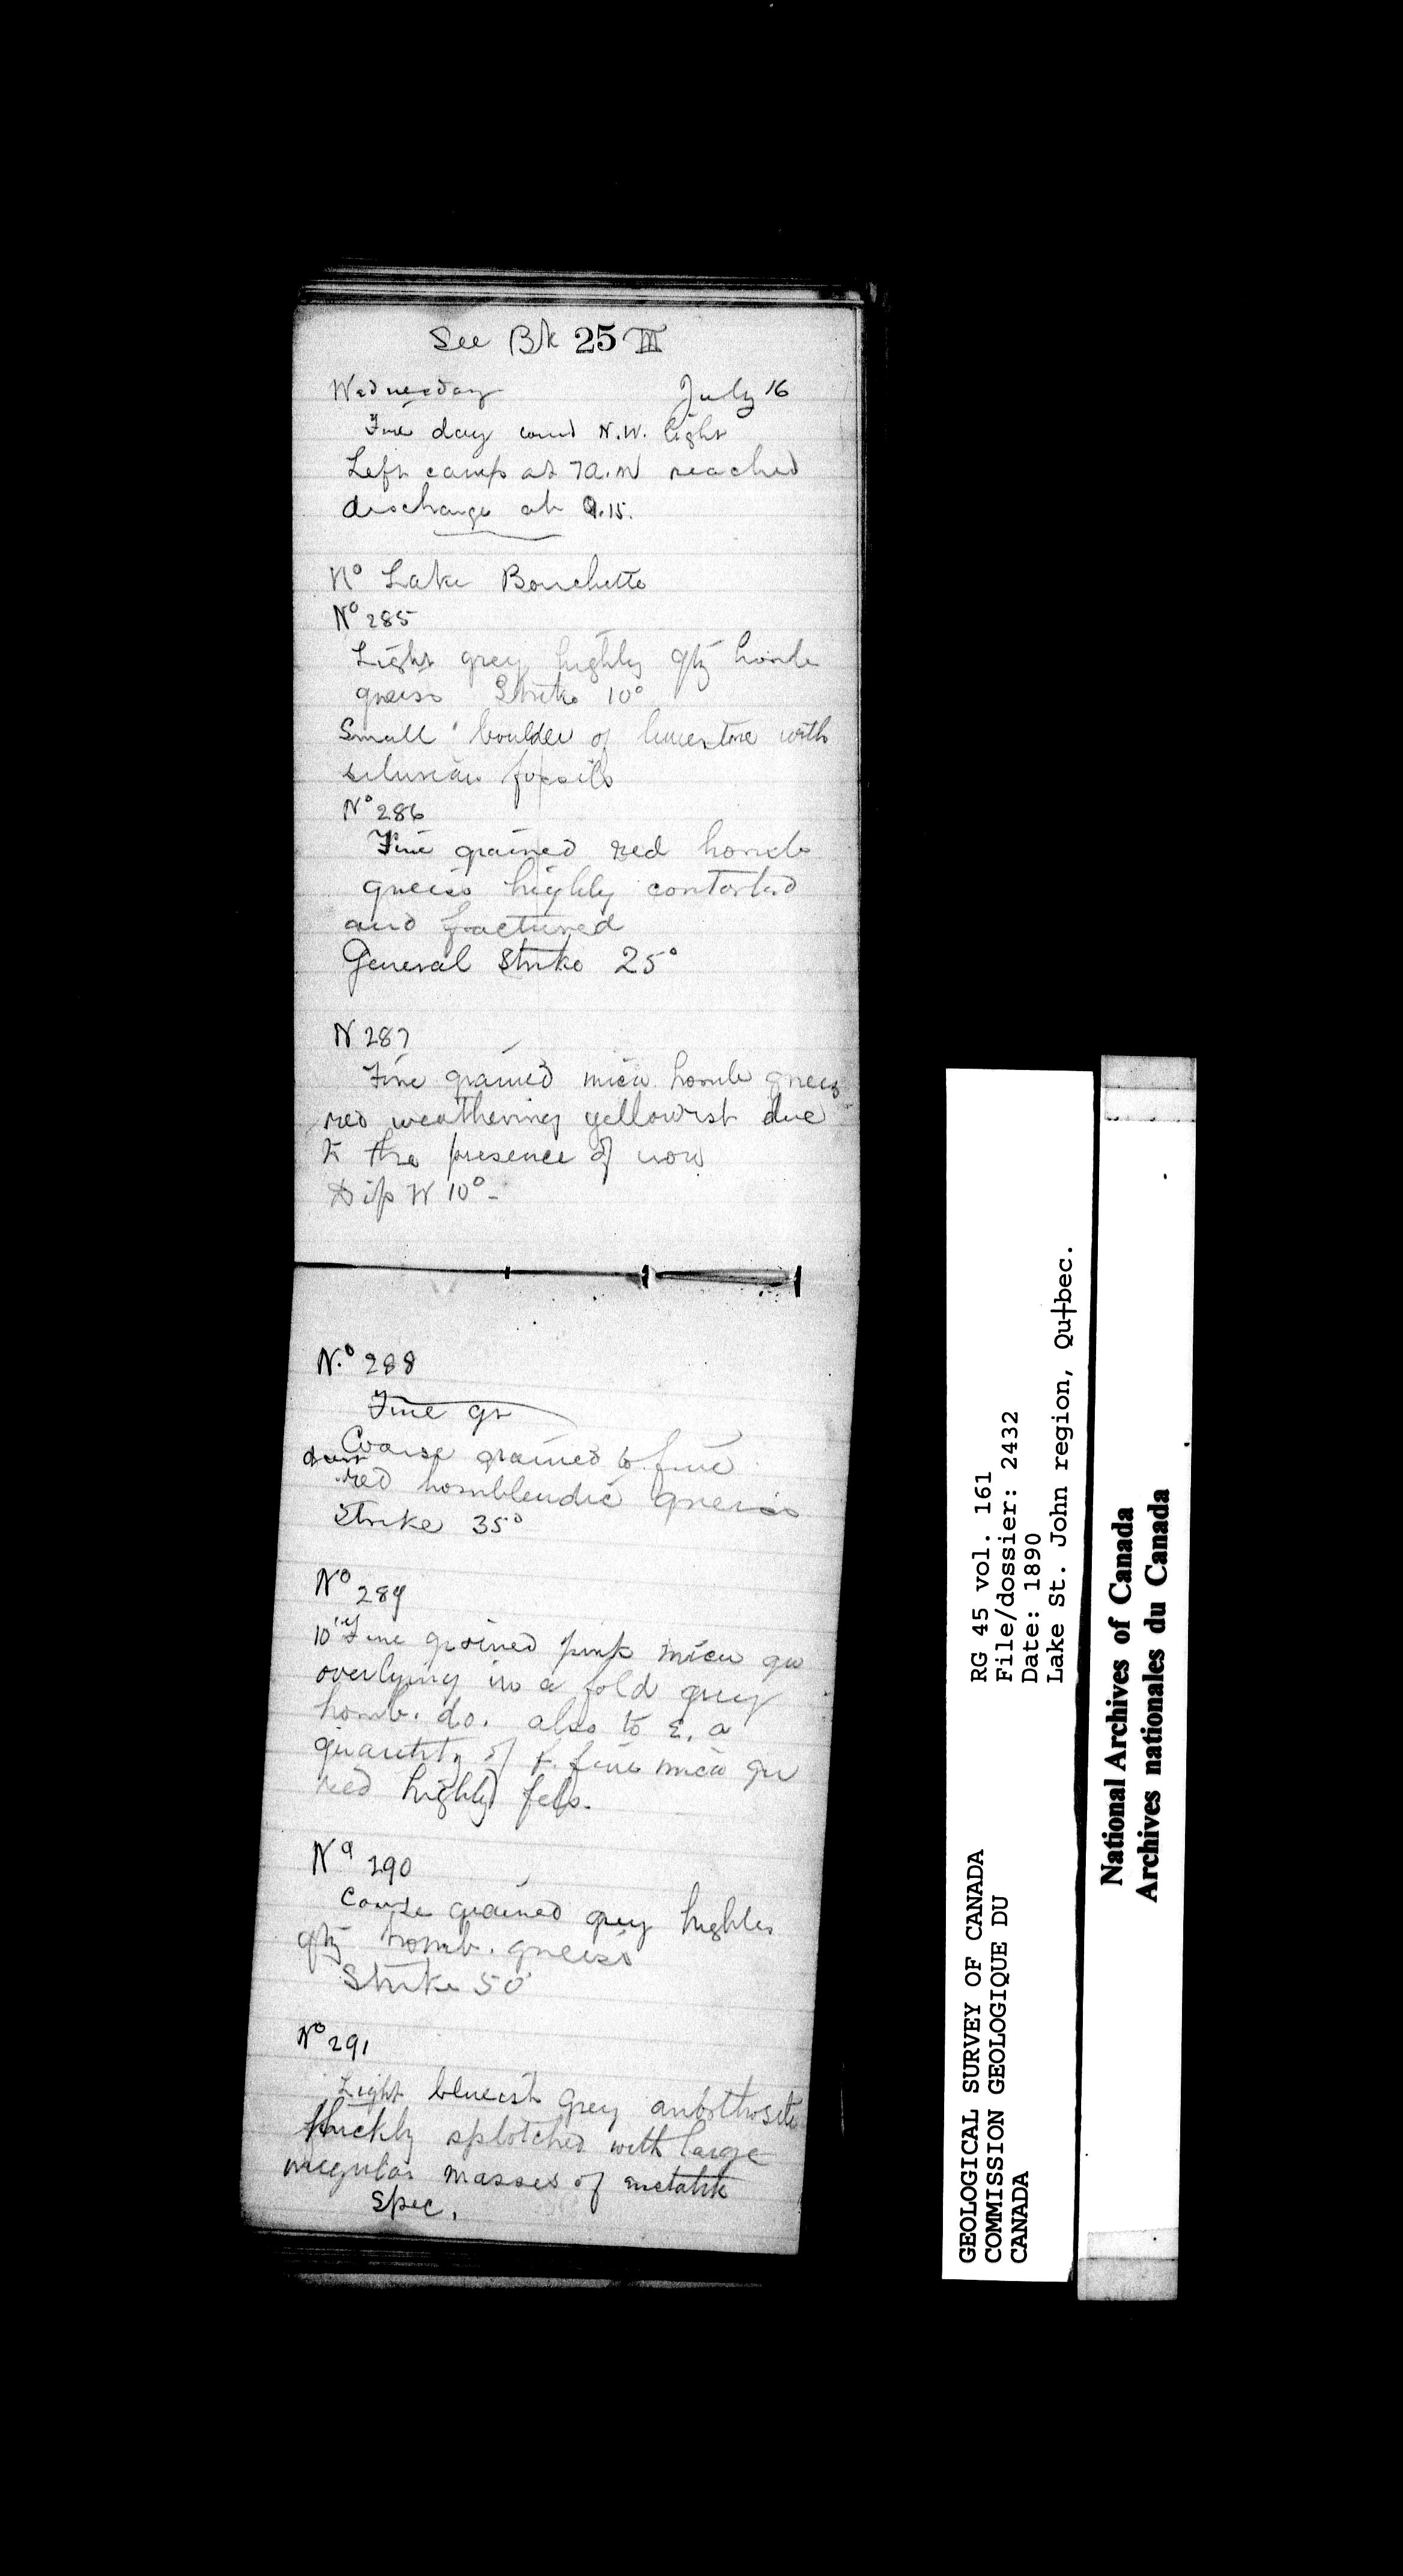 See Bk 25 III
Wednesday July 16
Fine day wind N.W. light
Left camp at 7 a.m reached
discharge at 9.15.
No Lake Bouchette
No 285
Light grey highly qtz hornb
gneiss Strike 10°
Small boulder of limestone with
silurian fossils
No 286
Fine grained red hornb
gneiss highly contorted
and fractured
General Strike 25°
N 287
Fine grained mica hornb gneiss
red weathering yellowish due
to the presence of iron
Dip W 10°-
N.o 288
Fine gr
Coarse grained to fine
dark red hornblendic gneiss
Strike 35°
No 289
10' Fine grained pink mica gn
overlying in a fold grey
hornb. do. also to E. a
quantity of fine mica gn
red highly fels.
No 290
Coarse grained grey highly
qtz hornb. gneiss
Strike 50°
No 291
Light blueish grey anorthosite
thickly splotched with large
irregular masses of enstatite
Spec.
GEOLOGICAL SURVEY OF CANADA
COMMISSION GEOLOGIQUE DU
CANADA
RG 45 vol. 161
File/dossier: 2432
Date: 1890
Lake St. John region, Qu┼bec.
National Archives of Canada
Archives nationales du Canada